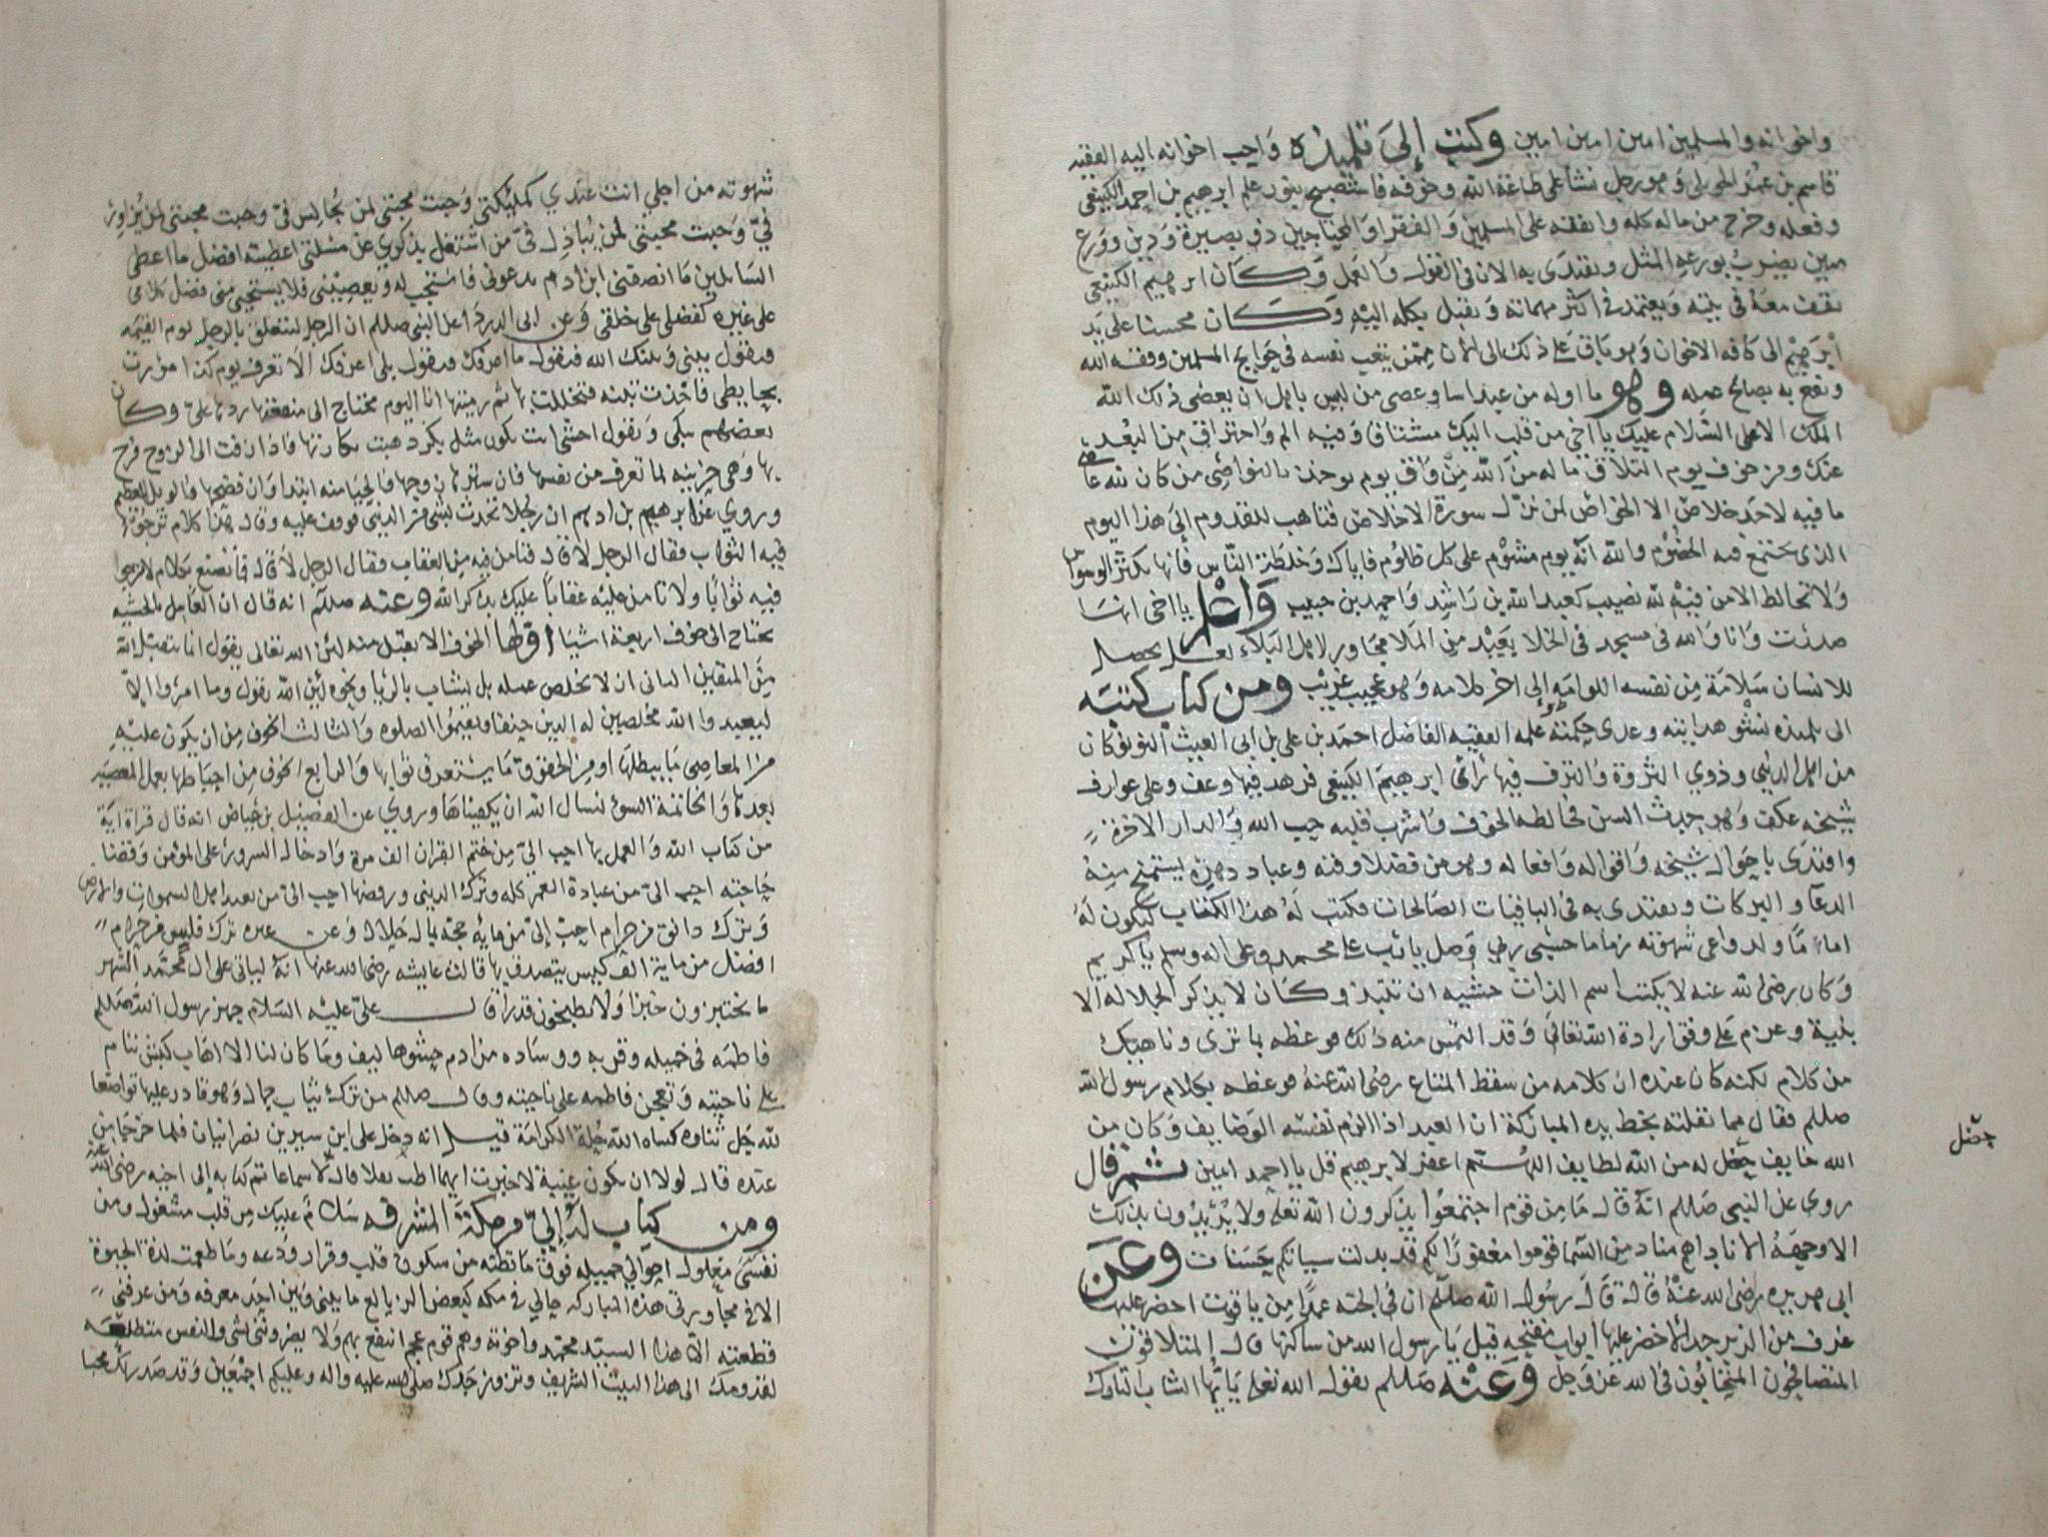 واخوانه والمسلمين امين امين امين وكتب إلى تلميذه واحب اخوانه اليه الفقيه
قاسم بن عمر وهو رجل نشأ على طاعة الله وخوفه فاستصبح بنور علم ابرهيم بن احمد الكينعي
وفعله وخرج من ماله كله وانفقه على المسلمين والفقرا والمحتاجين ذو بصيرة ودين وورع
يضرب بورعه المثل ويقتدى به الان في القول والعمل وكان ابرهيم الكينعي
يقف معه في بيته ويعتمده في اكثر مهماته ويقبل بكله اليه وكان محسنا على يد
ابرهيم الى كافة الاخوان وهو باق على ذلك الى الان ممن يتعب نفسه في حوايج المسلمين ووفقه الله
ونفع به بصالح عمله وهو ما اوله من عبد اسا وعصى من ليس ياهل ان يعصى ذلك الله
الملك الاعلى السلام عليك يا اخي من قلب اليك مشتاق وفيه الم واحتراق من البعد
عنك ومن خوف يوم التلاق ماله من الله من واق يوم يوخذ بالنواصي من كان لله عاصي
ما فيه لاحد خلاص الا الخواص لمن نزل سورة الاخلاص فتاهب للقدوم إلى هذا اليوم
الذي يجتمع فيه الخصوم والله انه يوم مشوم على كل ظلوم فاياك وخلطة الناس فانها تكثر الوسواس
ولا تخالط الا من فيه لله نصيب كعبد الله بن راشد واحمد بن حبيب واعلم يا اخي انما
صدرت وانا والله في مسجد في الخلا بعيد من الملا مجاور لاهل البلاء لعل يحصل
للانسان سلامة من نفسه اللوامه إلى اخر كلامه وهو عجيب غريب ومن كتاب كتبه
الى تلميذه نشو هدايته وغذي حكمته وعلمه الفقيه الفاضل احمد بن علي بن ابي الغيث كان
من اهل الدنيا وذوي الثروة والترف فيها رأى ابرهيم الكينعي فزهد فيها وعف وعلى عوارف
شيخه عكف وهو حديث السن فخالطه الخوف واشرب قلبه حب الله والدار الاخرة
واقتدى باحوال شيخه واقواله وافعاله وهو من فضلا وقته وعباد دهره يستمنح منه
الدعا والبركات ويقتدى به في الباقيات الصالحات فكتب له هذا الكتاب ليكون له
اماما ولدواعي شهوته زماما حسبي ربي وصل يا رب على محمد وعلى اله وسلم يا كريم
وكان رضي الله عنه لا يكتب اسم الذات خشيه ان تنبذ وكان لا يذكر الجلاله الا
بنية وعزم على وفق ارادة الله تعالى وقد التمس منه ذلك موعظه بما ترى وناهيك
من كلام لكنه كان عنده ان كلامه من سقط المتاع رضي الله عنه موعظه بكلام رسول الله
صللم فقال مما نقلته بخط يده المباركة ان العبد اذا الزم نفسه الوضايف وكان من
الله خايف حصل له من الله لطايف اللهم اغفر لابرهيم قل يا احمد امين ثم قال
روي عن النبي صللم انه قال ما من قوم اجتمعوا يذكرون الله تعالى ولا يريدون بذلك
الا وجهه الا ناداهم مناد من السما قوموا مغفورا لكم قد بدلت سياتكم حسنات وعن
ابي هريره رضي الله عنه قال قال رسول الله صللم ان في الجنه عمدا من ياقوت احضر عليها
غرف من الزبرجد الاخضر عليها ابواب مفتحه قيل يا رسول الله من ساكنها قال المتلاقون
المتصافحون المتحابون في الله عز وجل وعنه صللم يقول الله تعالى يا ايها الشاب التارك
حصل
شهوته من اجلي انت عندي كملائكتي وجبت محبتي لمن يجالس في وجبت محبتي لمن يزاور
في وجبت محبتي لمن يباذل في من اشتغل بذكري عن مسئلتي اعطيته افضل ما اعطي
السايلين ما انصفني ابن ادم يدعوني فاستجيب له ويعصيني فلا يستحي مني فضل كلامي
على غيره كفضلي على خلقي وعن ابي الدرداء عن النبي صللم ان الرجل ليتعلق بالرجل يوم القيمه
فيقول بيني وبينك الله فيقول ما اعرفك فيقول بلى اعرفك الا تعرف يوم كذا مررت
بحايطي فاخذت تبنه فتخللت بها ثم رميتها انا اليوم محتاج الى منفعتها ردها علي وكان
بعضهم يبكي ويقول اخشى ان يكون مثل بكر ذهبت بكارتها فاذا زفت الى الزوج فرح
بها وهي حزينه لما تعرف من نفسها فان سترها زوجها فالحيا منه ابتدا وان فضحها فالويل العظيم
وروي عن ابرهيم بن ادهم ان رجلا تحدث بشي من الدنيا فوقف عليه وقال هذا كلام ترجو
فيه الثواب فقال الرجل لا قال فتامن فيه من العقاب فقال الرجل لا قال فما تصنع بكلام لا ترجو
فيه ثوابا ولا تامن عليه عقابا عليك بذكر الله وعنه صللم انه قال ان العامل بالخشيه
يحتاج الى خوف اربعة اشيا اولها الخوف الا يقبل منه لئن الله تعالى يقول انما يتقبل الله
من المتقين الثاني ان لا يخلص عمله بل يشاب بالريا ونحوه لئن الله يقول وما امروا الا
ليعبدوا الله مخلصين له الدين حنفا ويقيموا الصلوه والثالث الخوف من ان يكون عليه
من المعاصي ما يبطلها او من الحقوق ما يستغرق ثوابها والرابع الخوف من احباطها بعمل المعصيه
بعدها والخاتمة السوء نسال الله ان يكفيناها وروي عن الفضيل بن عياض انه قال قراة اية
من كتاب الله والعمل بها احب الي من ختم القران الف مرة وادخال السرور على المؤمن وقضا
حاجته احب الي من عبادة العمر كله وترك الدنيا ورفضها احب الي من تعبد اهل السموات والارض
وترك دانق من حرام احب إلي من مايه حجة بمال حلال وعن غيره ترك فليس من حرام
افضل من ماية الف كيس يتصدق بها قالت عايشه رضي الله عنها انه لياتي على ال محمد الشهر
ما يختبزون خبزا ولا يطبخون قدرا قال علي عليه السلام جهز رسول الله صللم
فاطمه في خميله وقربه ووساده من ادم حشوها ليف وما كان لنا الا اهاب كبش ننام
على ناحيته وتعجن فاطمه على ناحيته وقال صللم من ترك ثياب جمال وهو قادر عليها تواضعا
لله جل ثناوه كساه الله حلة الكرامة قيل انه دخل على ابن سيرين نصرانيان فلما خرجا من
عنده قال لولا ان يكون غيبة لاخبرت ايهما اطب تم كتابه إلى اخيه رضي الله عنه
ومن كتاب له إلي من مكة المشرفه سلام عليك من قلب مشغول ومن
نفس معلول احوالي جميله فوق ما تظنه من سكون قلب وقرار ودعه وما طعمت لذة الحيوة
الا في مجاورتي هذه المباركه حالي في مكه كبعض ما بيني وبين احد معرفه ومن عرفني
قطعته الا هذا السيد محمد واخوته وهم قوم انتفع بهم ولا يضرونني بشي والنفس متطلعه
لقدومك الى هذا البيت الشريف وتزور جدك صلى الله عليه واله وعليكم اجمعين وقد صدر